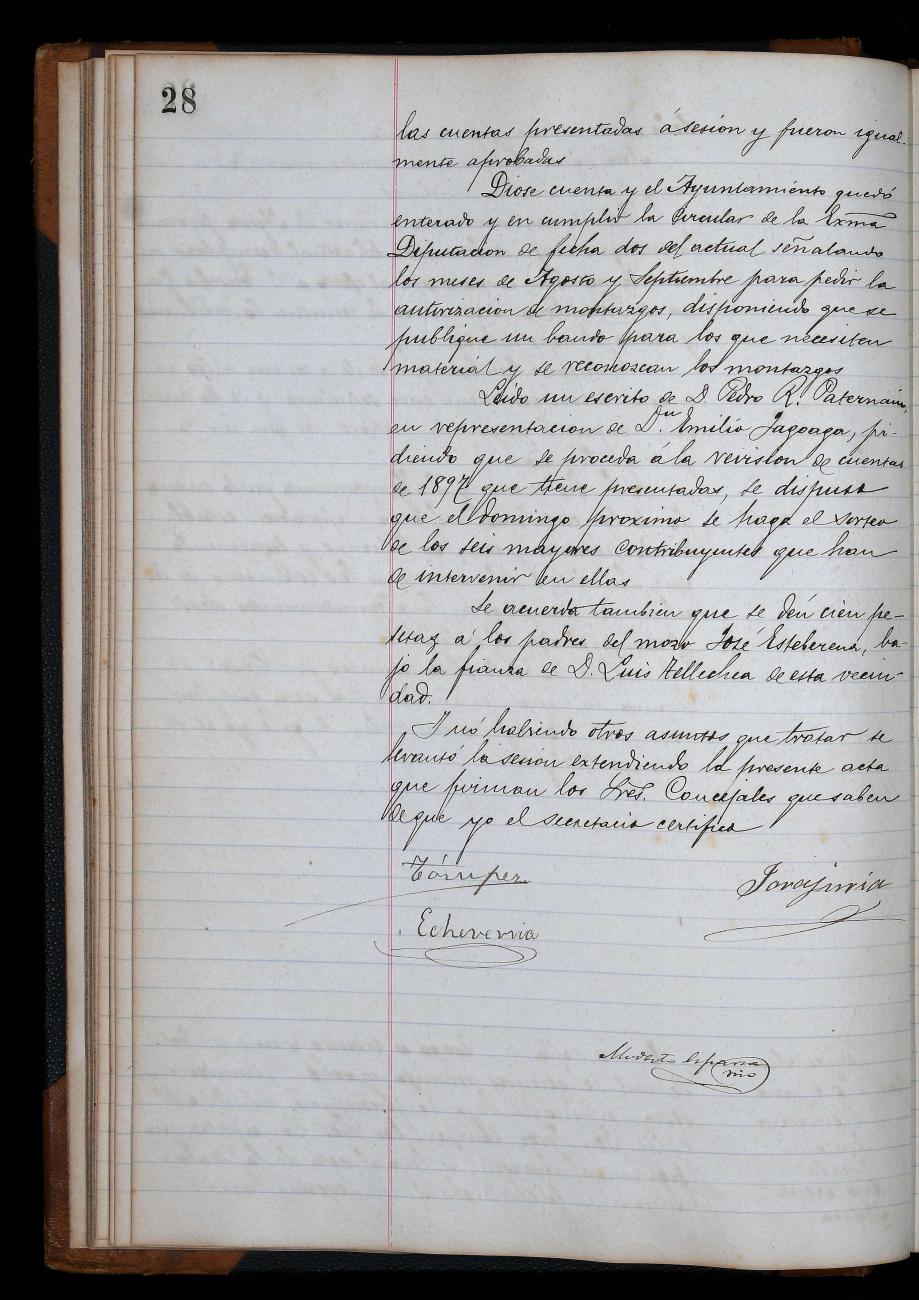 28
las cuentas presentadas á sesion y fueron igual-
mente aprobadas
Diose cuenta y el Ayuntamiento quedó
enterado y en cumplir la circular de la Exma
Diputacion de fecha dos del actual señalando
los meses de Agosto y Septiembre para pedir la
autorizacion de montazgos, disponiendo que se
publique un bando para los que necesiten
material y se reconozcan los montazgos
Leido un escrito de D. Pedro R. Paternain,
en representacion de Dn. Emilio Jagoaga, pi-
diendo que se proceda á la revision de cuentas
de 1897 que tiene presentadas, se dispuso
que el domingo proximo se haga el sorteo
de los seis mayores contribuyentes que han
de intervenir en ellas
Se acuerda tambien que se dén cien pe-
setas á los padres del mozo José Esteberena, ba-
jo la fianza de D. Luis Tellechea de esta vecin-
dad.
Y nó habiendo otros asuntos que tratar se
levantó la sesion extendiendo la presente acta
que firman los Sres. Concejales que saben
de que yo el secretario certifico
Echeverria
Modesto